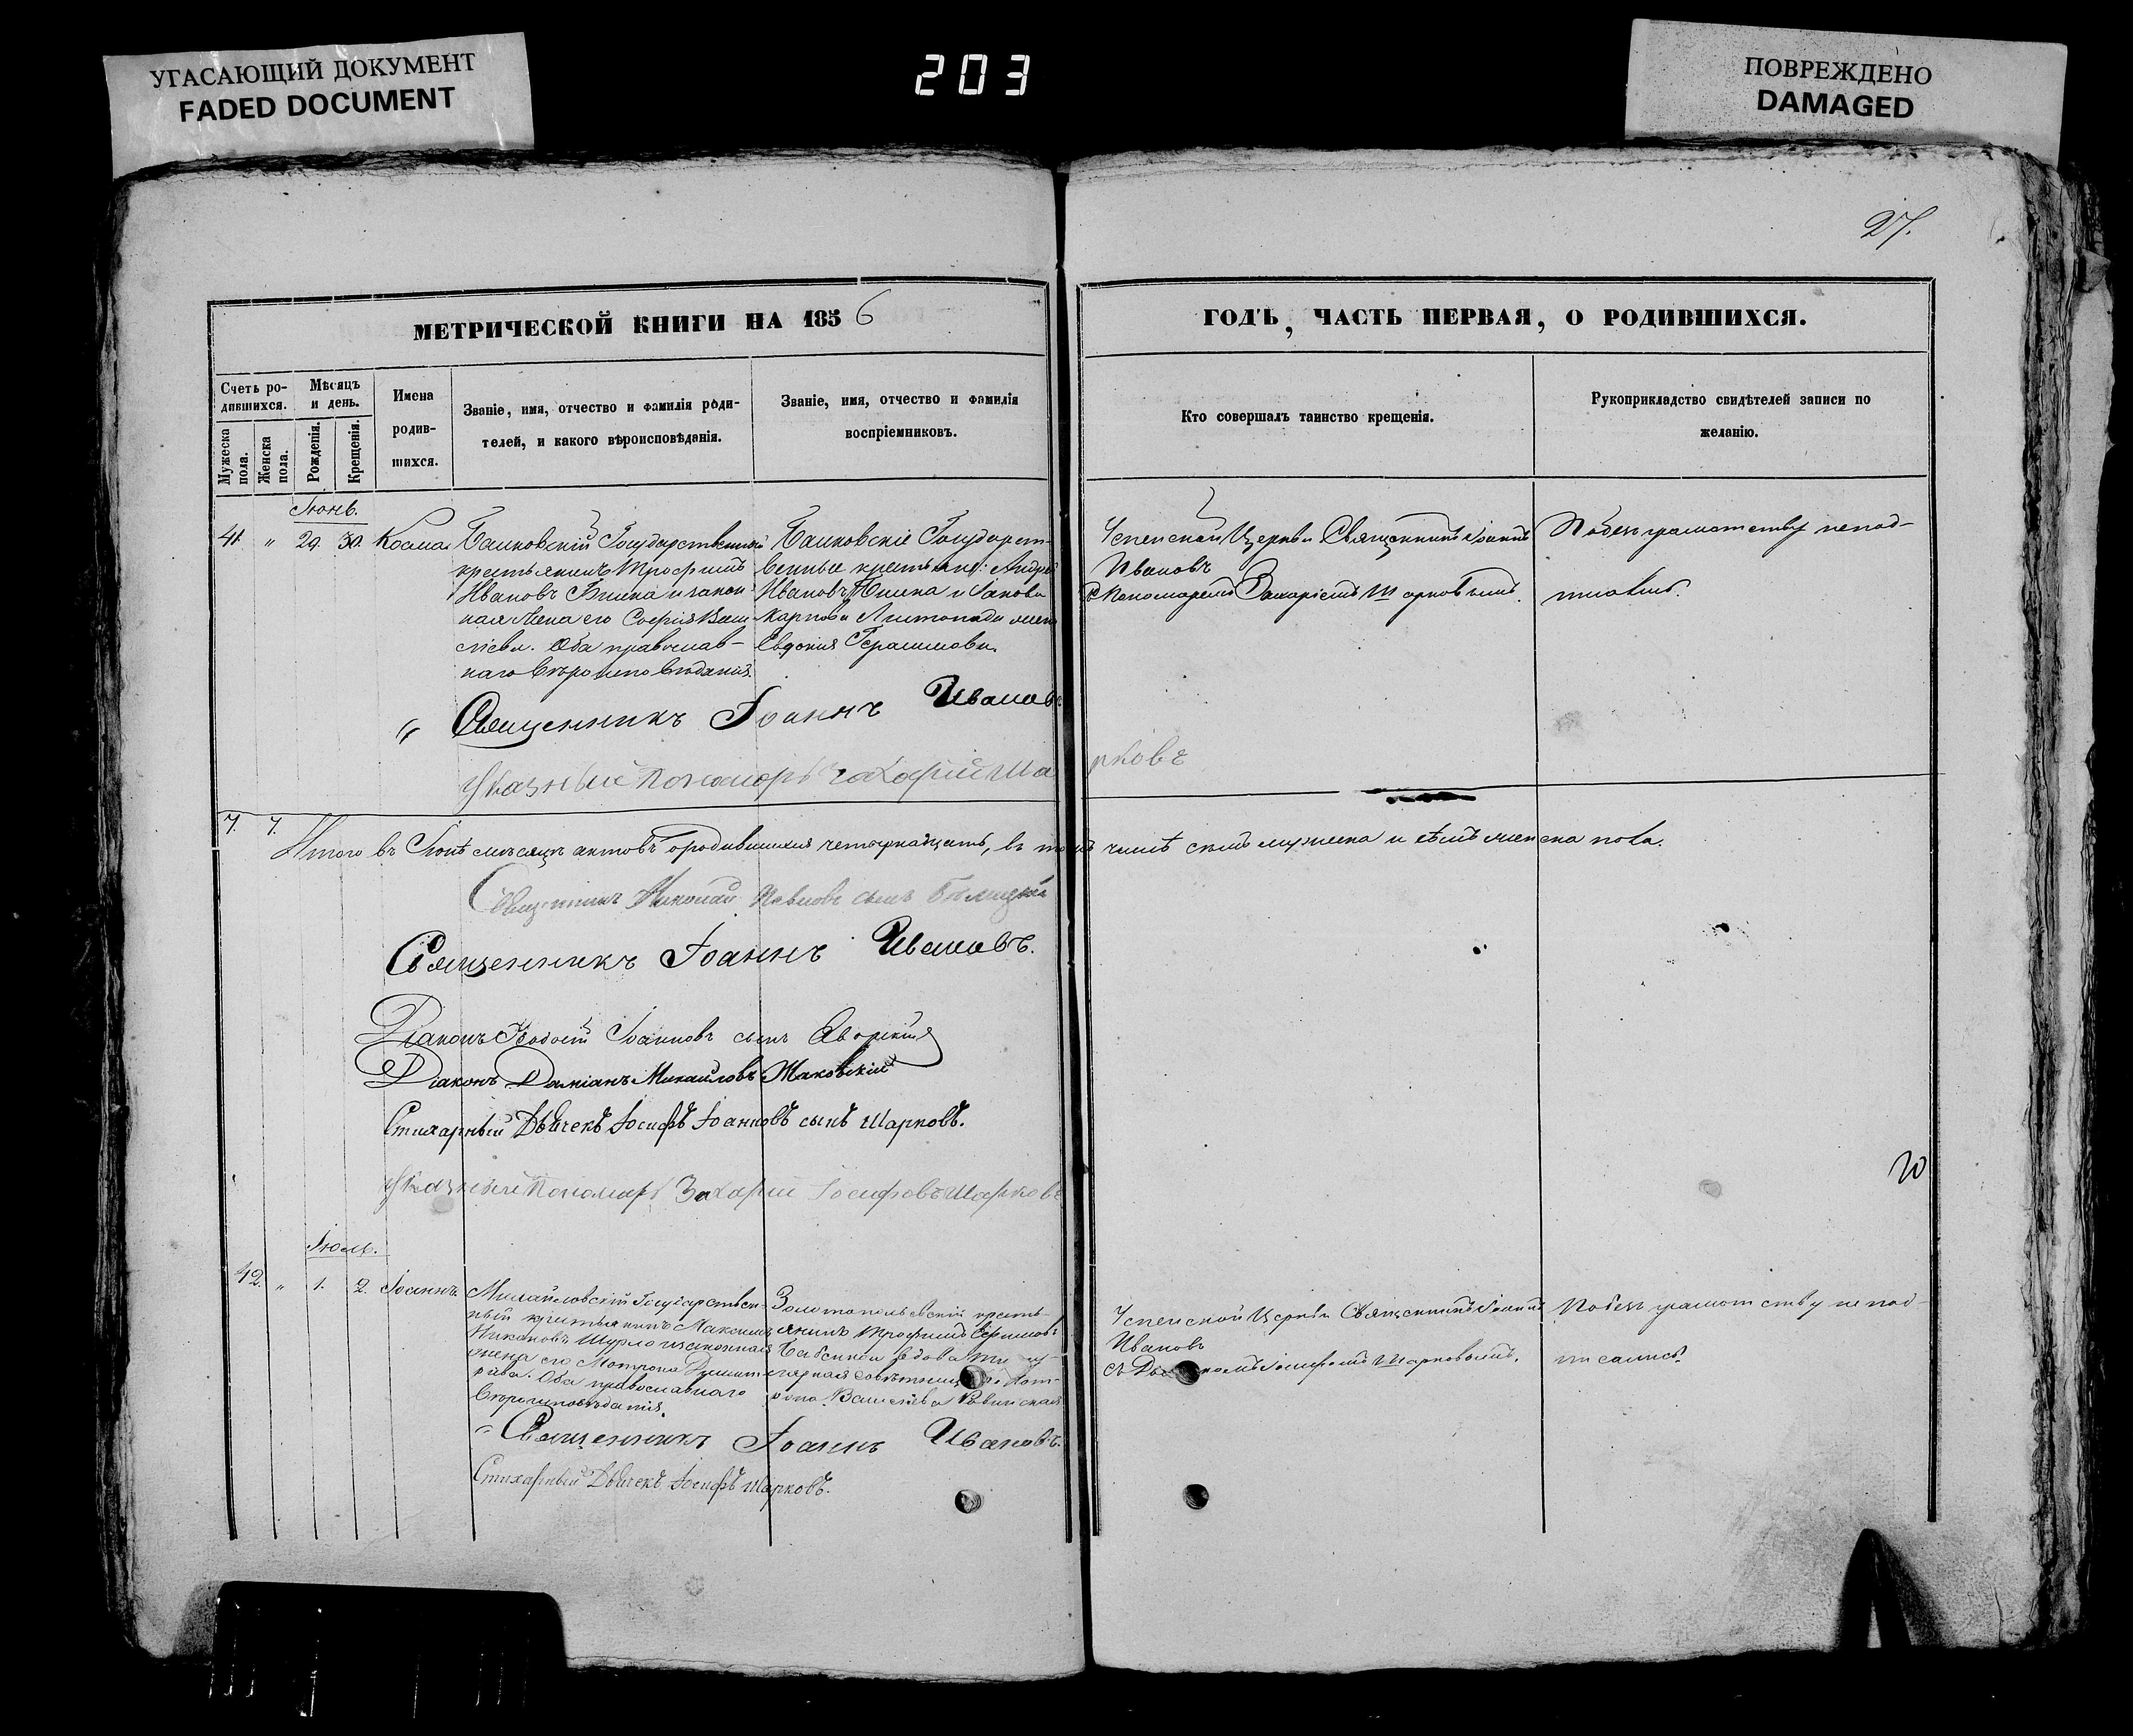 УГАСАЮЩИЙ ДОКУМЕНТ
FADED DOCUMENT
203
ПОВРЕЖДЕНО
DAMAGED
27.
МЕТРИЧЕСКОЙ КНИГИ НА 1856
ГОДЪ, ЧАСТЬ ПЕРВАЯ, О РОДИВШИХСЯ.
Счетъ ро-
дившихся.
Мужеска
пола.
Женска
пола.
Мѣсяцъ
и день.
Рожденія.
Крещенія.
Имена
родив-
шихся.
Званіе, имя, отчество и фамилія роди-
телей, и какого вѣроисповѣданія.
Званіе, имя, отчество и фамилія
воспріемниковъ.
Кто совершалъ таинство крещенія.
Рукоприкладство свидѣтелей записи по
желанію.
Іюнь.
41. " 29. 30. Косма
Государственный
крестьянинъ Трофимъ
Ивановъ и закон
ная жена его Софія Васи
лiева. Оба православ-
наго вѣроисповѣданія.
Государст-
венные крестьяне: Андрей
Ивановъ и Іакова
Карпова жена
Евдокия Герасимова.
Успенской Церкви Священникъ Іоаннъ
Ивановъ
съ Пономаремъ Захаріемъ Шарковымъ.
По безграмотству непод-
писались.
Священникъ Іоаннъ Ивановъ
Указный Пономарь Захарій Шарковъ
7. 7.
Итого въ Іюнѣ мѣсяцѣ актовъ о родившихся четырнадцать, въ томъ числѣ семь мужеска и семь женска пола.
Священникъ Николай Павловъ сынъ
Священникъ Іоаннъ Ивановъ.
Діаконъ Іоанновъ сынъ Яворскій
Діаконъ Даміанъ Михайловъ Маковскій
Стихарный Дьячекъ Іосифъ Іоанновъ сынъ Шарковъ.
Указный Пономарь Захарій Іосифовъ Шарковъ
20
Іюль.
42. " 1. 2. Іоаннъ
Михайловскій Государствен-
ный крестьянинъ Максимъ
Никоновъ Шурло и законная
жена его Матрона Димит
ріева. Оба православнаго
вѣроисповѣданія.
Золотопольскій кресть-
янинъ Трофимъ Ефимовъ
вдова
совѣтница Мат-
рона Василіева
Успенской Церкви Священникъ Іоаннъ
Ивановъ
съ Дьячкомъ Іосифомъ Шарковымъ.
По безграмотству непод-
писались.
Священникъ Іоаннъ Ивановъ.
Стихарный Дьячекъ Іосифъ Шарковъ.